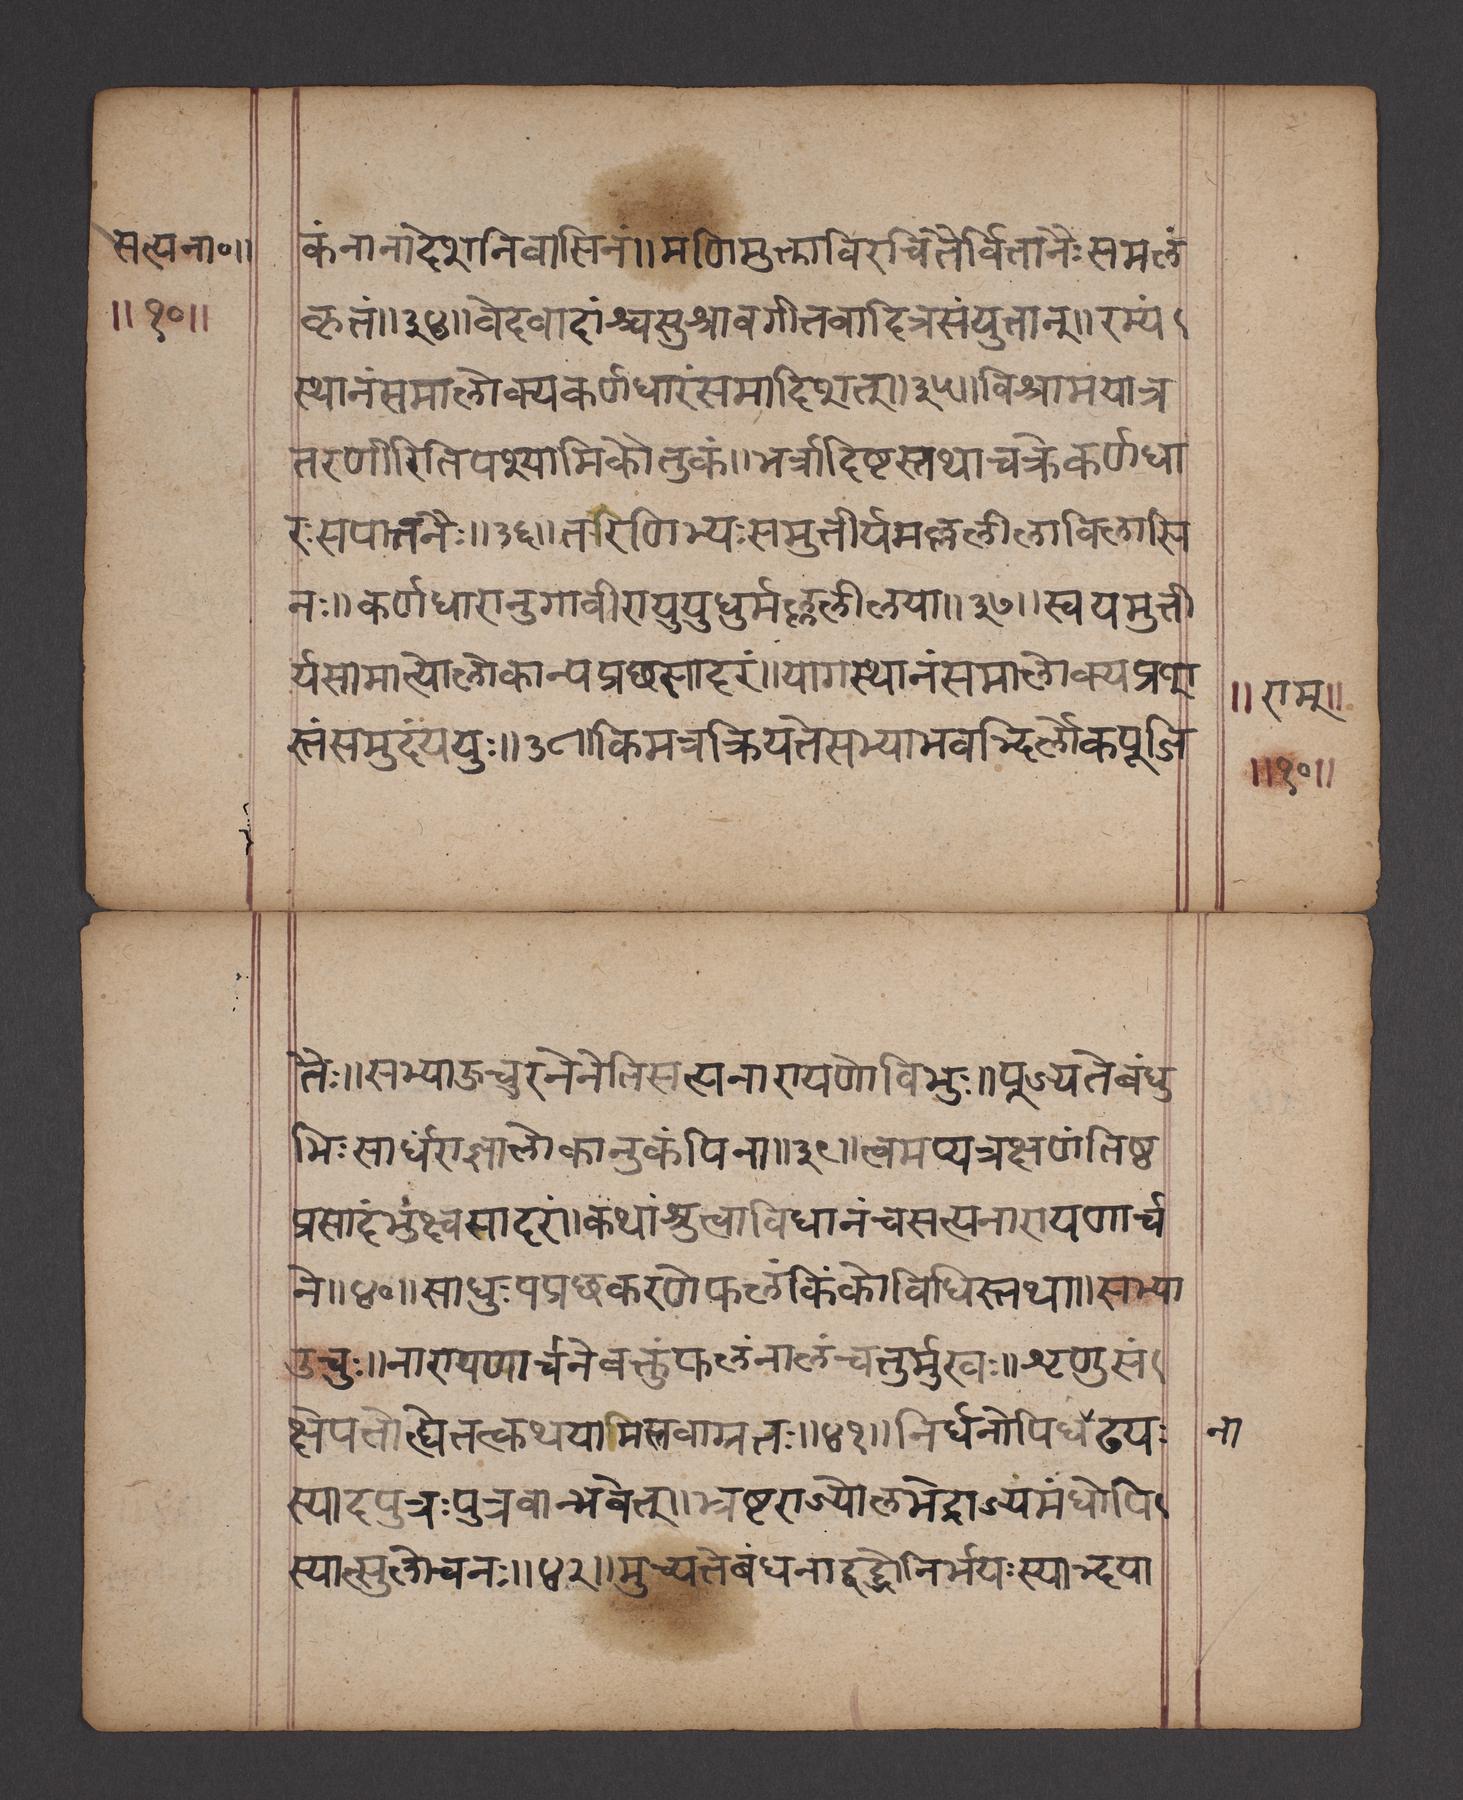 सत्यना०॥
॥१०॥
कंनानादेशनिवासिनं॥मणिमुक्ताविरचितैर्वितानैःसमलं
कृतं॥३४॥वेदवादांश्चसुश्रावगीतवादित्रसंयुतान्॥रम्यं
स्थानंसमालोक्यकर्णधारंसमादिशत्॥३५॥विश्रामयात्र
तरणीरितिपश्यामिकौतुकं॥भर्त्रादिष्टस्तथाचक्रेकर्णधा
रःसपातनैः॥३६॥तरिणिभ्यःसमुत्तीर्यमल्ललीलाविलासि
नः॥कर्णधारानुगावीरायुयुधुर्मल्ललीलया॥३७॥स्वयमुत्ती
र्यसामात्योलोकान्पप्रछसादरं॥यागस्थानंसमालोक्यप्रश
स्तंसमुदंययुः॥३८॥किमत्रक्रियतेसभ्याभवद्भिर्लोकपूजि
॥राम्॥
॥१०॥
तैः॥सभ्याऊचुरनेनेतिसत्यनारायणोविभुः॥पूज्यतेबंधु
भिःसार्धंराज्ञालोकानुकंपिना॥३९॥त्वमप्यत्रक्षणंतिष्ठ
प्रसादंभुंक्ष्वसादरं॥कथांश्रुत्वाविधानंचसत्यनारायणार्च
ने॥४०॥साधुःपप्रछकरणेफलंकिंकोविधिस्तथा॥सभ्या
उचुः॥नारायणार्चनेवक्तुंफलंनालंचतुर्मुखः॥शृणुसं
क्षेपतोत्द्येतत्कथयामिस्तवाग्रतः॥४१॥निर्धनोपिधढ्यः
ना
स्यादपुत्रःपुत्रवान्भवेत्॥भ्रष्टराज्योलभेद्राज्यमंधोपि
स्यात्सुलोचनः॥४२॥मुच्यतेबंधनाद्बद्धोनिर्भयःस्याद्भया